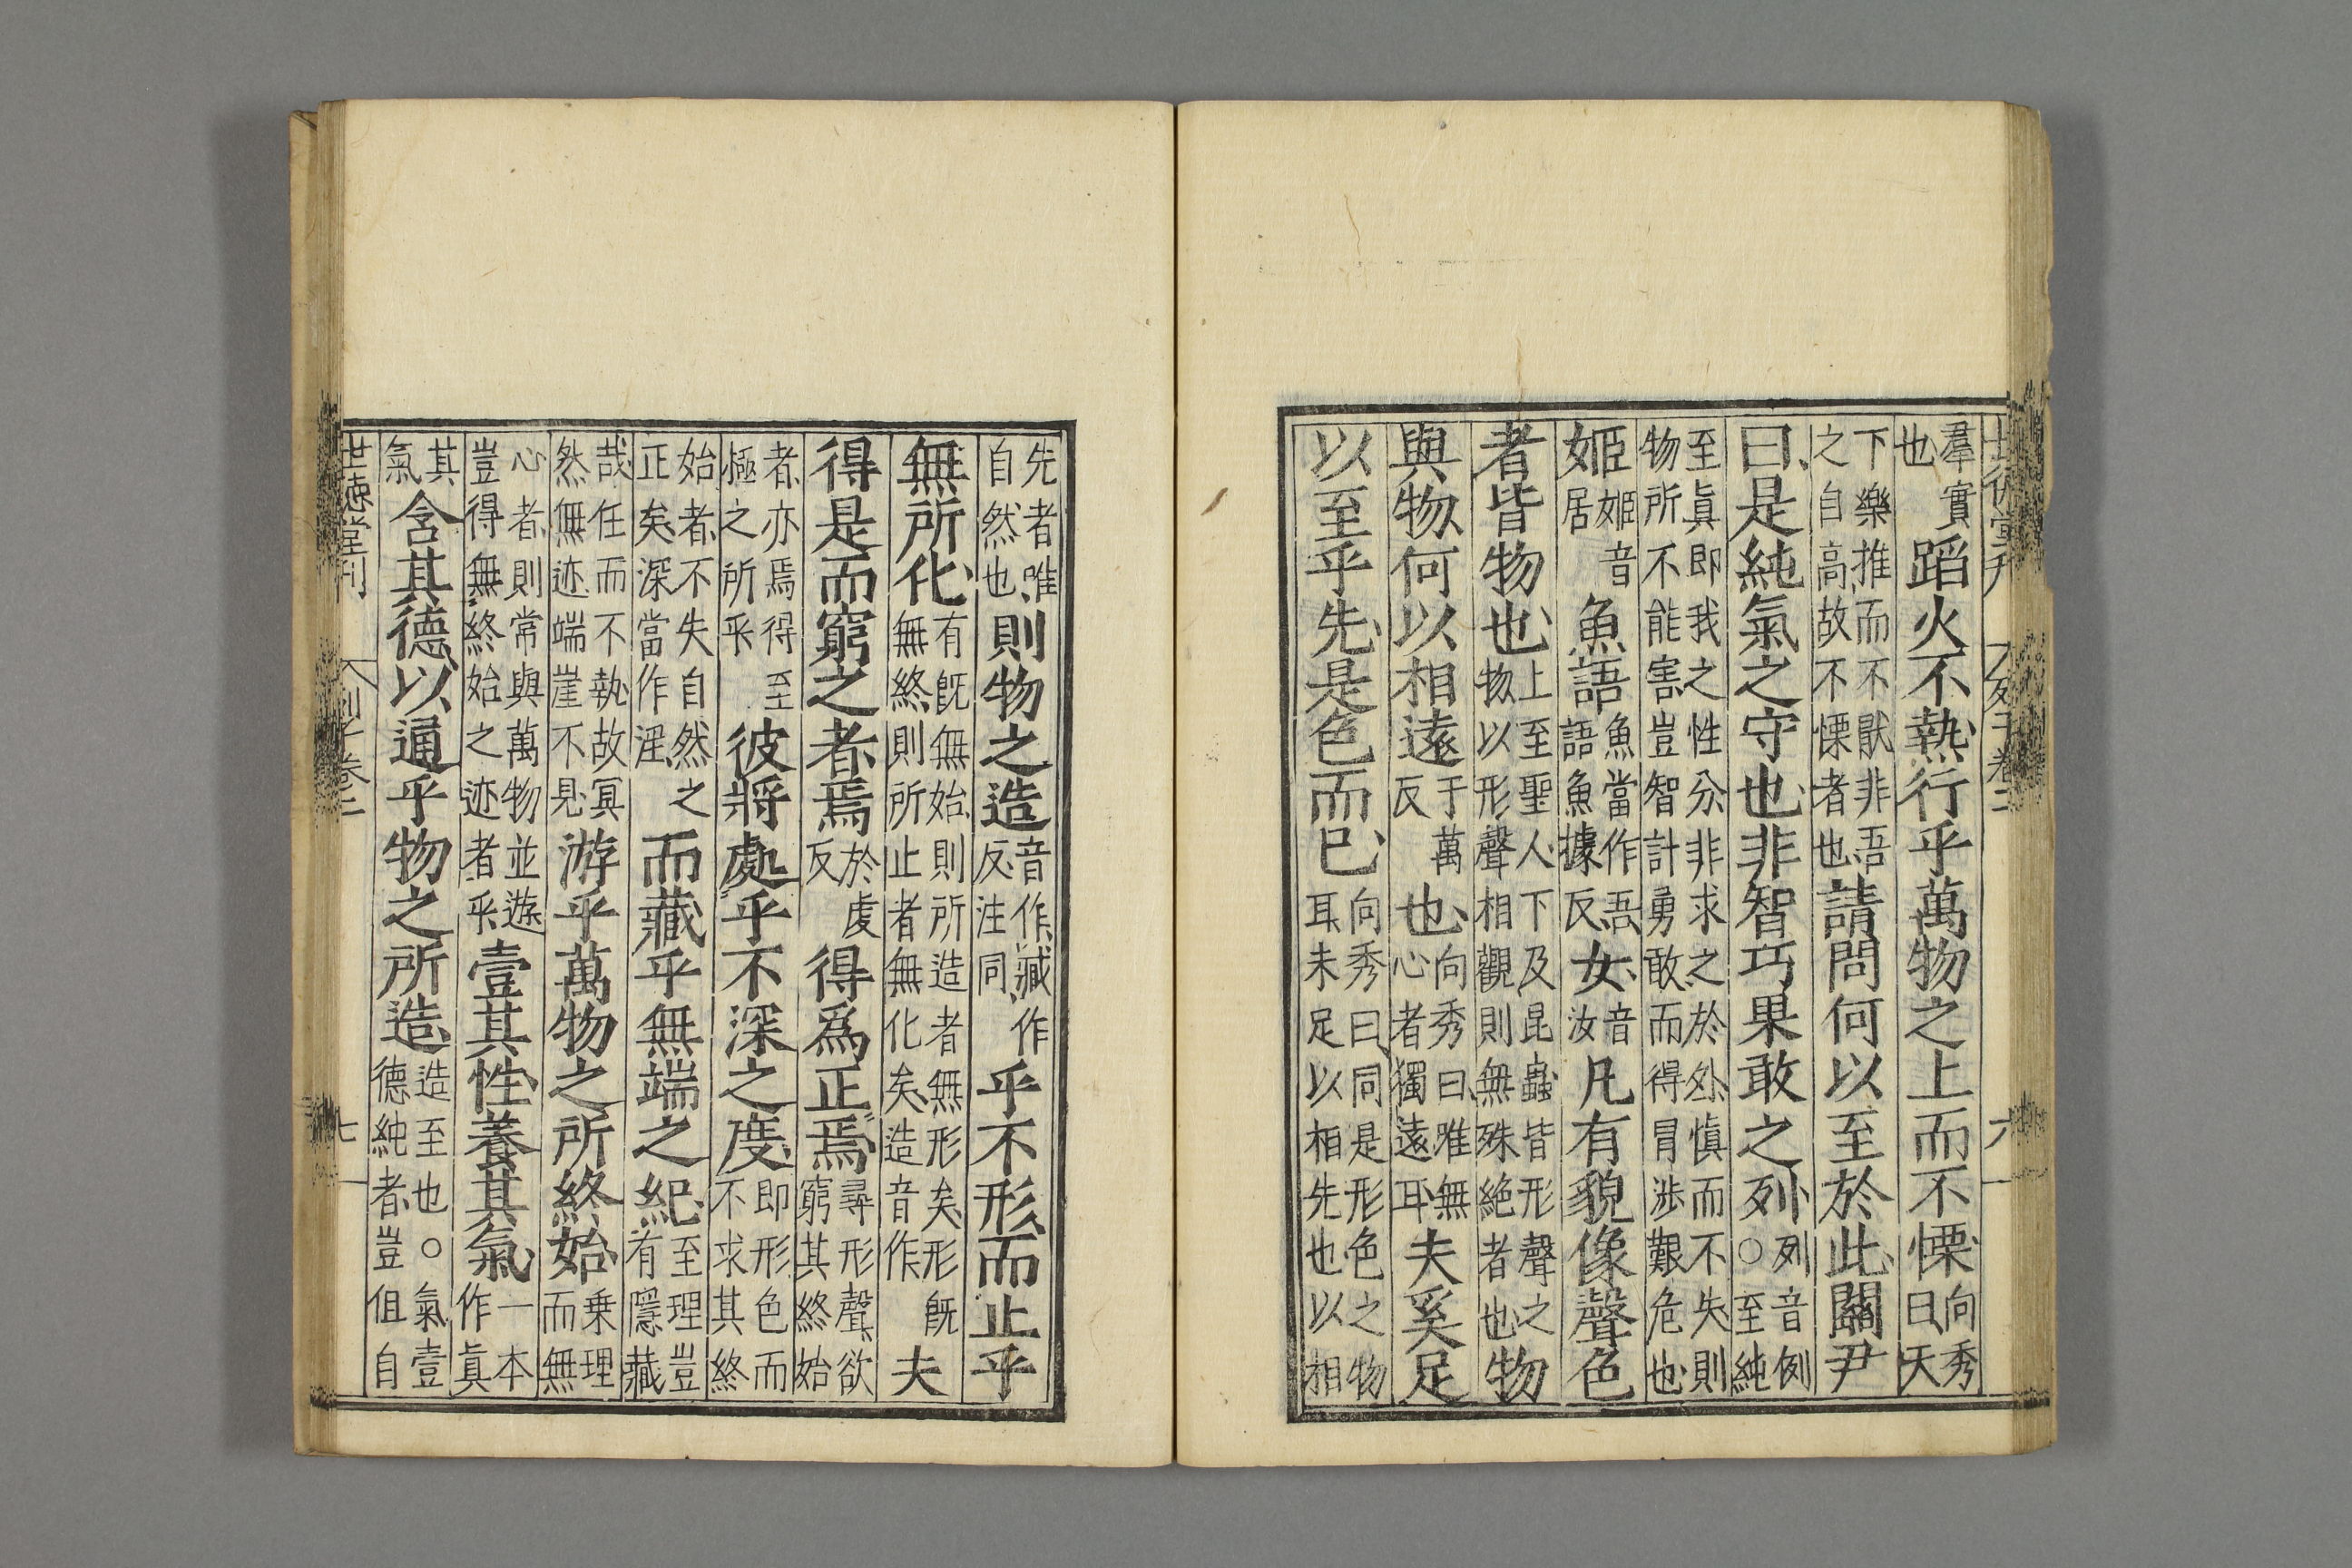 羣實也蹈火不熱行乎萬物之上而不慄向秀曰天
下樂推而不猒非吾之自高故不慄者也請問何以至於此關尹
曰是純氣之守也非智巧果敢之列列音例○至純
至眞即我之性分非求之於外愼而不失則物所不能害豈智計勇敢而得冒涉艱危也
姬姬音居魚語魚當作吾語魚據反女音汝凡有貌像聲色
者皆物也上至聖人下及昆蟲皆形聲之物以形聲相觀則無殊絶者也物
與物何以相遠于萬反也向秀曰唯無心者獨遠耳夫奚足
以至乎先是色而已向秀曰同是形色之物耳未足以相先也以相
先者唯自然也則物之造音作臧作反注同乎不形而止乎
無所化有旣無始則所造者無形矣形旣無終則所止者無化矣造音作夫
得是而窮之者焉於虔反得爲正焉尋形聲欲窮其終始
者亦焉得至極之所乎彼將處乎不深之度即形色而不求其終
始者不失自然之正矣深當作淫而藏乎無端之紀至理豈有隱藏
哉任而不執故冥然無迹端崖不見游乎萬物之所終始乗理而無
心者則常與萬物並遊豈得無終始之迹者乎壹其性養其氣一本作眞
其氣含其德以通乎物之所造造至也○氣壹德純者豈但自
世德堂刊 列子卷二 七